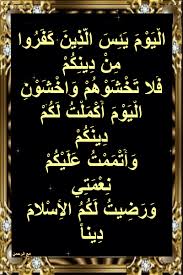 الْيَوْمَ يَئِسَ الَّذِينَ كَفَرُوا
مِنْ دِينِكُمْ
فَلا تَخْشَوْهُمْ وَاخْشَوْنِ
الْيَوْمَ أَكْمَلْتُ لَكُمْ
دِينَكُمْ
وَأَتْمَمْتُ عَلَيْكُمْ
نِعْمَتِي
وَرَضِيتُ لَكُمُ الإِسْلامَ
دِيناً